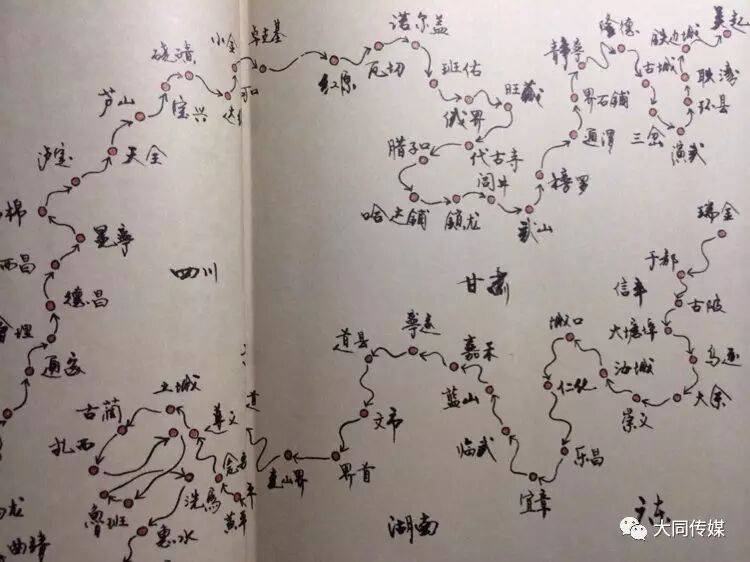 硗碛
宝兴
芦山
泸定
天全
冕宁
西昌
德昌
会理
通安
小金
卓克基
红原
瓦切
诺尔盖
班佑
俄界
旺藏
腊子口
代古寺
闾井
哈达铺
镇龙
武山
榜罗
通渭
界石铺
静宁
隆德
古城
三岔
演武
环县
耿湾
铁边城
吴起
四川
甘肃
瑞金
于都
信丰
古陂
大塘埠
乌迳
大余
崇义
汝城
城口
仁化
乐昌
宜章
临武
蓝山
嘉禾
宁远
道县
文市
界首
湖南
广东
土城
遵义
古蔺
扎西
鲁班
洗马
惠水
黄平
曲靖
大同传媒